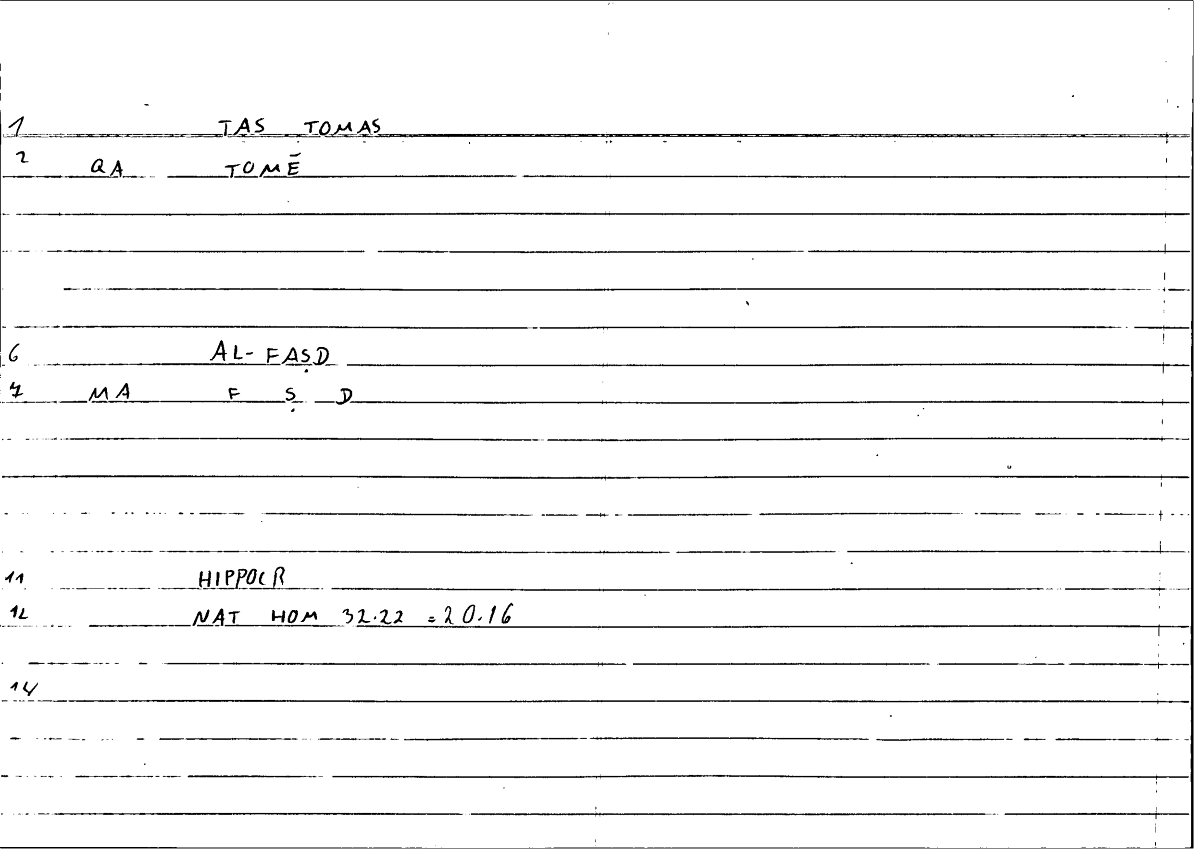 1 TAS TOMAS
2 QA TOMĒ
6 AL-FAṢD
7 MA F Ṣ D
11 HIPPOCR
12 NAT HOM 32.22 =20.16
14